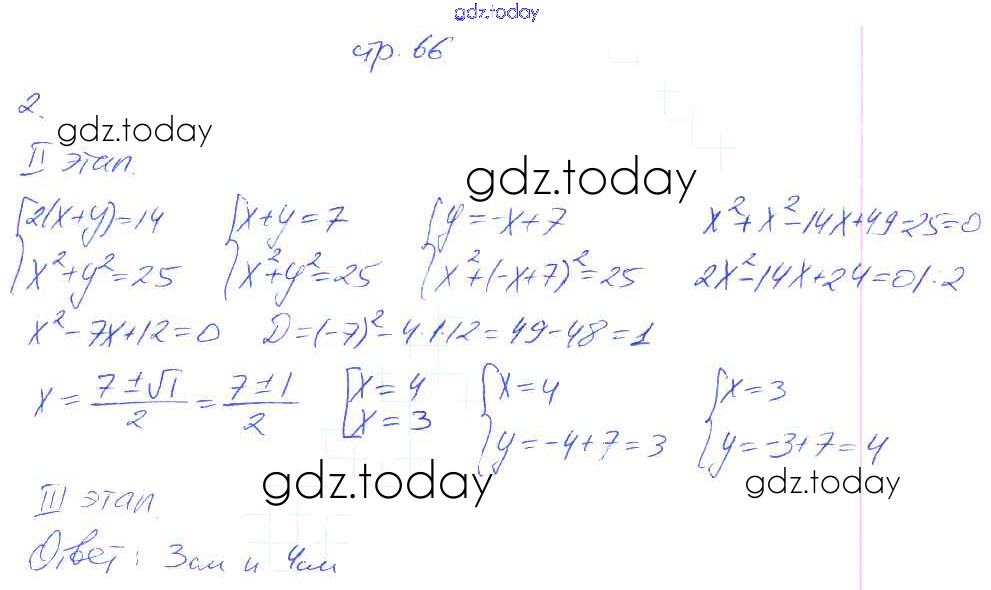 gdz.today
стр. 66
2.
gdz.today
II этап.
gdz.today
{2(x+y)=14 {x+y=7 {y=-x+7 x²+x²-14x+49-25=0
x²+y²=25 x²+y²=25 x²+(-x+7)²=25 2x²-14x+24=0|:2
x²-7x+12=0 D=(-7)²-4·1·12=49-48=1
x=(7±√1)/2=(7±1)/2 [x=4 x=3 {x=4 {x=3
y=-4+7=3 y=-3+7=4
gdz.today gdz.today
III этап.
Ответ: 3см и 4см